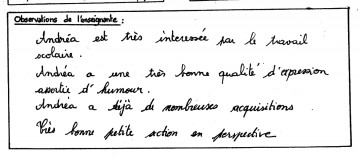 Observations de l'enseignante :
Andréa est très interessée par le travail
scolaire.
Andréa a une très bonne qualité d'expression
assortie d'humour.
Andréa a déjà de nombreuses acquisitions
Très bonne petite section en perspective